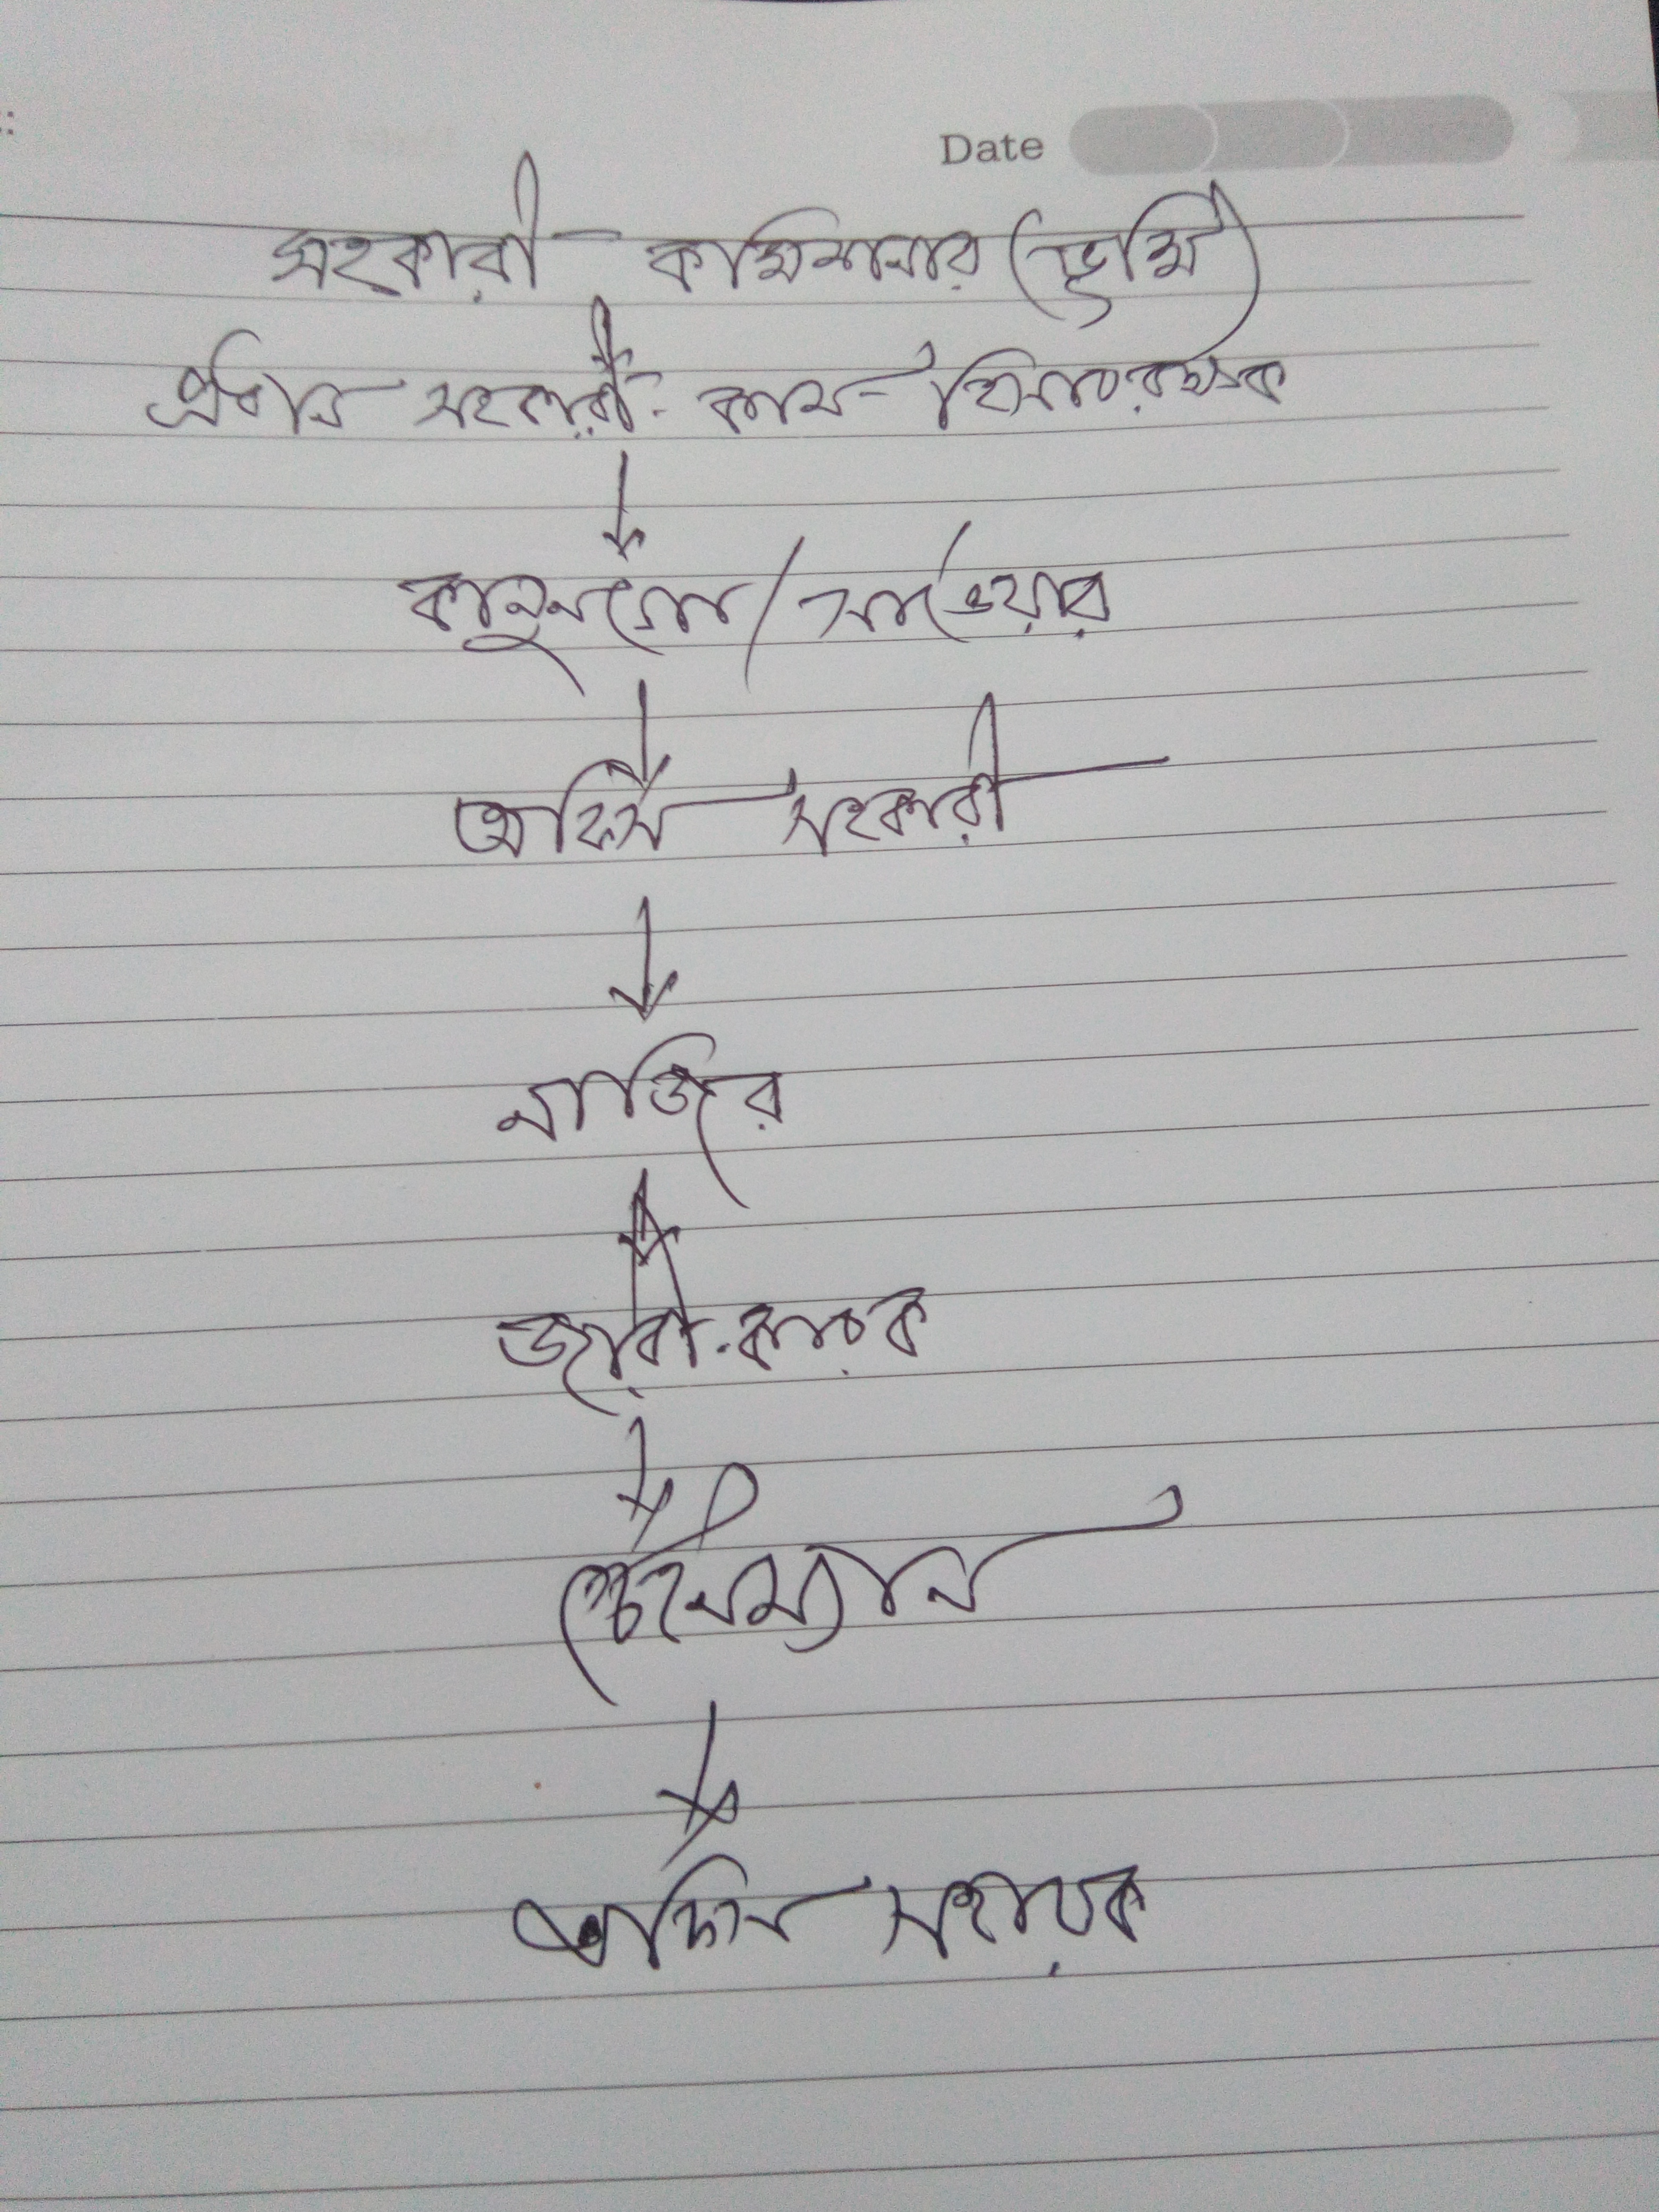 Date
সহকারী কমিশনার (ভূমি)
প্রধান সহকারী কাম হিসাবরক্ষক
কানুনগো/সার্ভেয়ার
অফিস সহকারী
নাজির
জারীকারক
চেইনম্যান
অফিস সহায়ক